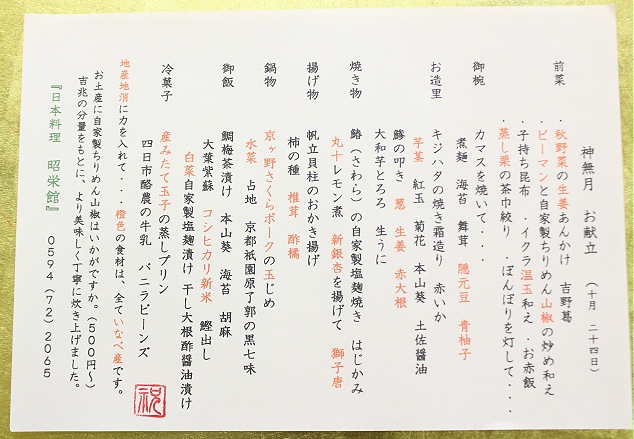 神無月　お献立　（十月　二十四日）
前菜　・秋野菜の生姜あんかけ　吉野葛
・ピーマンと自家製ちりめん山椒の炒め和え
・子持ち昆布　・イクラ温玉和え　・お赤飯
・蒸し栗の茶巾絞り　・ぼんぼりを灯して・・・
御椀　カマスを焼いて・・・
煮麺　海苔　舞茸　隠元豆　青柚子
お造里　キジハタの焼き霜造り　赤いか
芋茎　紅玉　菊花　本山葵　土佐醤油
鯵の叩き　葱　生姜　赤大根
大和芋とろろ　生うに
焼き物　鰆（さわら）の自家製塩麹焼き　はじかみ
丸十レモン煮　新銀杏を揚げて　獅子唐
揚げ物　帆立貝柱のおかき揚げ
柿の種　椎茸　酢橘
鍋物　京ヶ野さくらポークの玉じめ
水菜　占地　京都祇園原了郭の黒七味
御飯　鯛梅茶漬け　本山葵　海苔　胡麻
大葉紫蘇　コシヒカリ新米　鰹出し
白菜自家製塩麹漬け　干し大根酢醤油漬け
冷菓子　産みたて玉子の蒸しプリン
四日市酪農の牛乳　バニラビーンズ
地産地消に力を入れて・・・橙色の食材は、全ていなべ産です。
お土産に自家製ちりめん山椒はいかがですか。（５００円〜）
吉兆の分量をもとに、より美味しく丁寧に炊き上げました。
『日本料理　昭栄館』　０５９４（７２）２０６５
祝